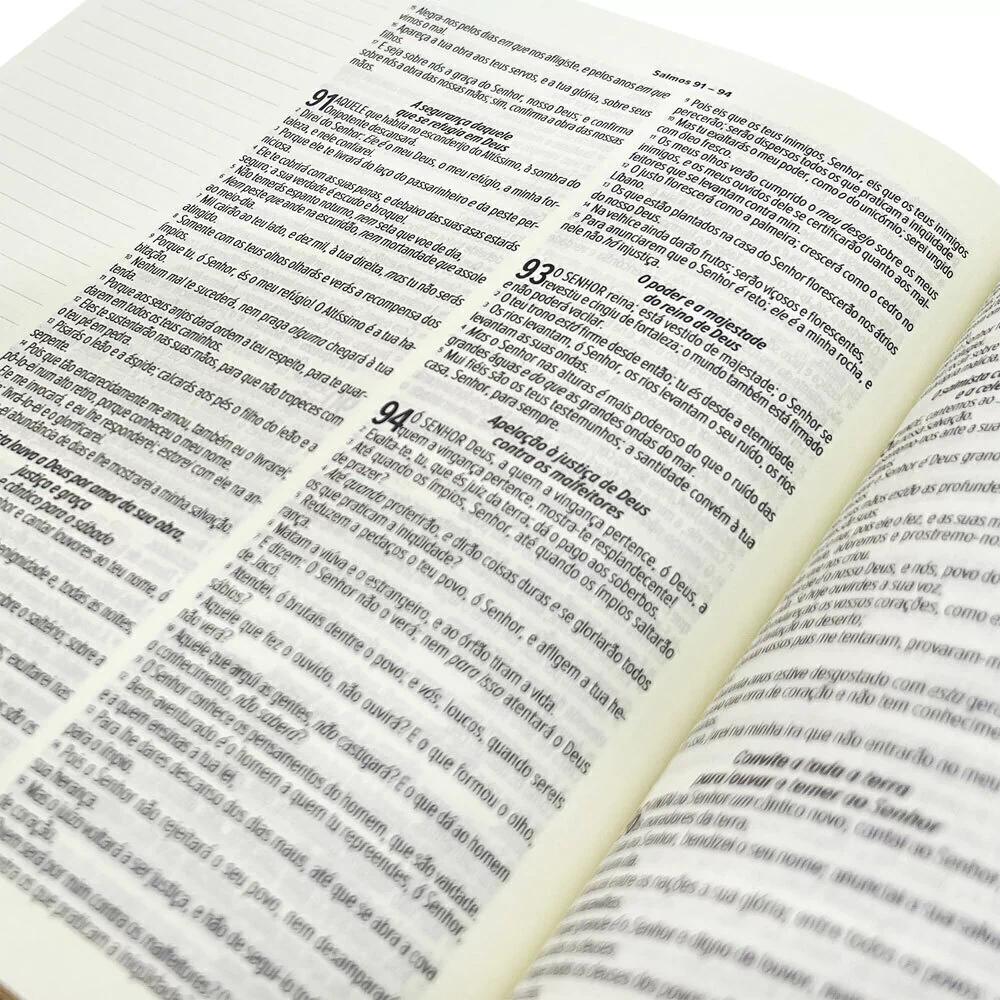 Salmos 91 – 94
15 Alegra-nos pelos dias em que nos afligiste, e pelos anos em que
vimos o mal.
16 Apareça a tua obra aos teus servos, e a tua glória, sobre seus
filhos.
17 E seja sobre nós a graça do Senhor, nosso Deus; e confirma
sobre nós a obra das nossas mãos; sim, confirma a obra das nossas
mãos.
A segurança daquele
que se refugia em Deus
91 AQUELE que habita no esconderijo do Altíssimo, à sombra do
Onipotente descansará.
2 Direi do Senhor: Ele é o meu Deus, o meu refúgio, a minha for-
taleza, e nele confiarei.
3 Porque ele te livrará do laço do passarinheiro e da peste per-
niciosa.
4 Ele te cobrirá com as suas penas, e debaixo das suas asas estarás
seguro; a sua verdade é escudo e broquel.
5 Não temerás espanto noturno, nem seta que voe de dia,
6 Nem peste que ande na escuridão, nem mortandade que assole
ao meio-dia.
7 Mil cairão ao teu lado, e dez mil, à tua direita, mas tu não serás
atingido.
8 Somente com os teus olhos olharás e verás a recompensa dos
ímpios.
9 Porque tu, ó Senhor, és o meu refúgio! O Altíssimo é a tua ha-
bitação.
10 Nenhum mal te sucederá, nem praga alguma chegará à tua
tenda.
11 Porque aos seus anjos dará ordem a teu respeito, para te guar-
darem em todos os teus caminhos.
12 Eles te sustentarão nas suas mãos, para que não tropeces com
o teu pé em pedra.
13 Pisarás o leão e a áspide; calcarás aos pés o filho do leão e a
serpente.
14 Pois que tão encarecidamente me amou, também eu o livrarei;
pô-lo-ei num alto retiro, porque conheceu o meu nome.
Ele me invocará, e eu lhe responderei; estarei com ele na an-
livrá-lo-ei e o glorificarei.
abundância de dias e lhe mostrarei a minha salvação
louva a Deus por amor da sua obra,
justiça e graça
e cântico para o sábado
e cantar louvores ao teu nome, ó
benignidade e, todas as noites,
sobre o saltério; sobre a
exultarei nas
9 Pois eis que os teus inimigos, Senhor, eis que os teus inimigos
perecerão; serão dispersos todos os que praticam a iniquidade.
10 Mas tu exaltarás o meu poder, como o do unicórnio; serei ungido
com óleo fresco.
11 Os meus olhos verão cumprido o meu desejo sobre os meus
inimigos, e os meus ouvidos dele se certificarão quanto aos mal-
feitores que se levantam contra mim.
12 O justo florescerá como a palmeira; crescerá como o cedro no
Líbano.
13 Os que estão plantados na casa do Senhor florescerão nos átrios
do nosso Deus.
14 Na velhice ainda darão frutos; serão viçosos e florescentes,
15 Para anunciarem que o Senhor é reto; ele é a minha rocha, e
nele não há injustiça.
O poder e a majestade
do reino de Deus
93 O SENHOR reina; está vestido de majestade; o Senhor se
revestiu e cingiu de fortaleza; o mundo também está firmado
e não poderá vacilar.
2 O teu trono está firme desde então; tu és desde a eternidade.
3 Os rios levantam, ó Senhor, os rios levantam o seu ruído, os rios
levantam as suas ondas.
4 Mas o Senhor nas alturas é mais poderoso do que o ruído das
grandes águas e do que as grandes ondas do mar.
5 Mui fiéis são os teus testemunhos; a santidade convém à tua
casa, Senhor, para sempre.
Apelação à justiça de Deus
contra os malfeitores
94 Ó SENHOR Deus, a quem a vingança pertence, ó Deus, a
quem a vingança pertence, mostra-te resplandecente!
2 Exalta-te, tu, que és juiz da terra; dá o pago aos soberbos.
3 Até quando os ímpios, Senhor, até quando os ímpios saltarão
de prazer?
4 Até quando proferirão, e dirão coisas duras e se gloriarão todos
os que praticam a iniquidade?
5 Reduzem a pedaços o teu povo, ó Senhor, e afligem a tua he-
rança.
6 Matam a viúva e o estrangeiro, e ao órfão tiram a vida.
7 E dizem: O Senhor não o verá; nem para isso atentará o Deus
de Jacó.
8 Atendei, ó brutais dentre o povo; e vós, loucos, quando sereis
sábios?
9 Aquele que fez o ouvido, não ouvirá? E o que formou o olho,
não verá?
10 Aquele que argúi as gentes, não castigará? E o que dá ao homem
o conhecimento, não saberá?
11 O Senhor conhece os pensamentos do homem, que são vaidade.
12 Bem-aventurado é o homem a quem tu repreendes, ó Senhor,
e a quem ensinas a tua lei,
13 Para lhe dares descanso dos dias maus, até que se abra a cova
para o ímpio.
14 Pois o Senhor não rejeitará o seu povo, nem desamparará
a sua herança.
15 Mas o juízo voltará a ser justiça, e hão de segui-lo
de coração.
será por mim contra os malfeitores?
que praticam a iniquidade
o salmista
Senhor é Deus
estão as profunde
pois ele o fez, e as suas m
adoremos e prostremo-nos
é o nosso Deus, e nós, povo do
se hoje ouvirdes a sua voz,
os vossos corações, como
no deserto,
vossos pais me tentaram, provaram-m
anos estive desgostado com esta gera
que erra de coração e não tem conhecime
jurei na minha ira que não entrarão no meu
Convite a toda a terra
para louvar e temer ao Senhor
Senhor um cântico novo, cantai ao Senhor
moradores da terra.
Senhor, bendizei o seu nome; anunciai a sua salva
entre as nações a sua glória; entre todos os povos
grande é o Senhor e digno de louvor, mais